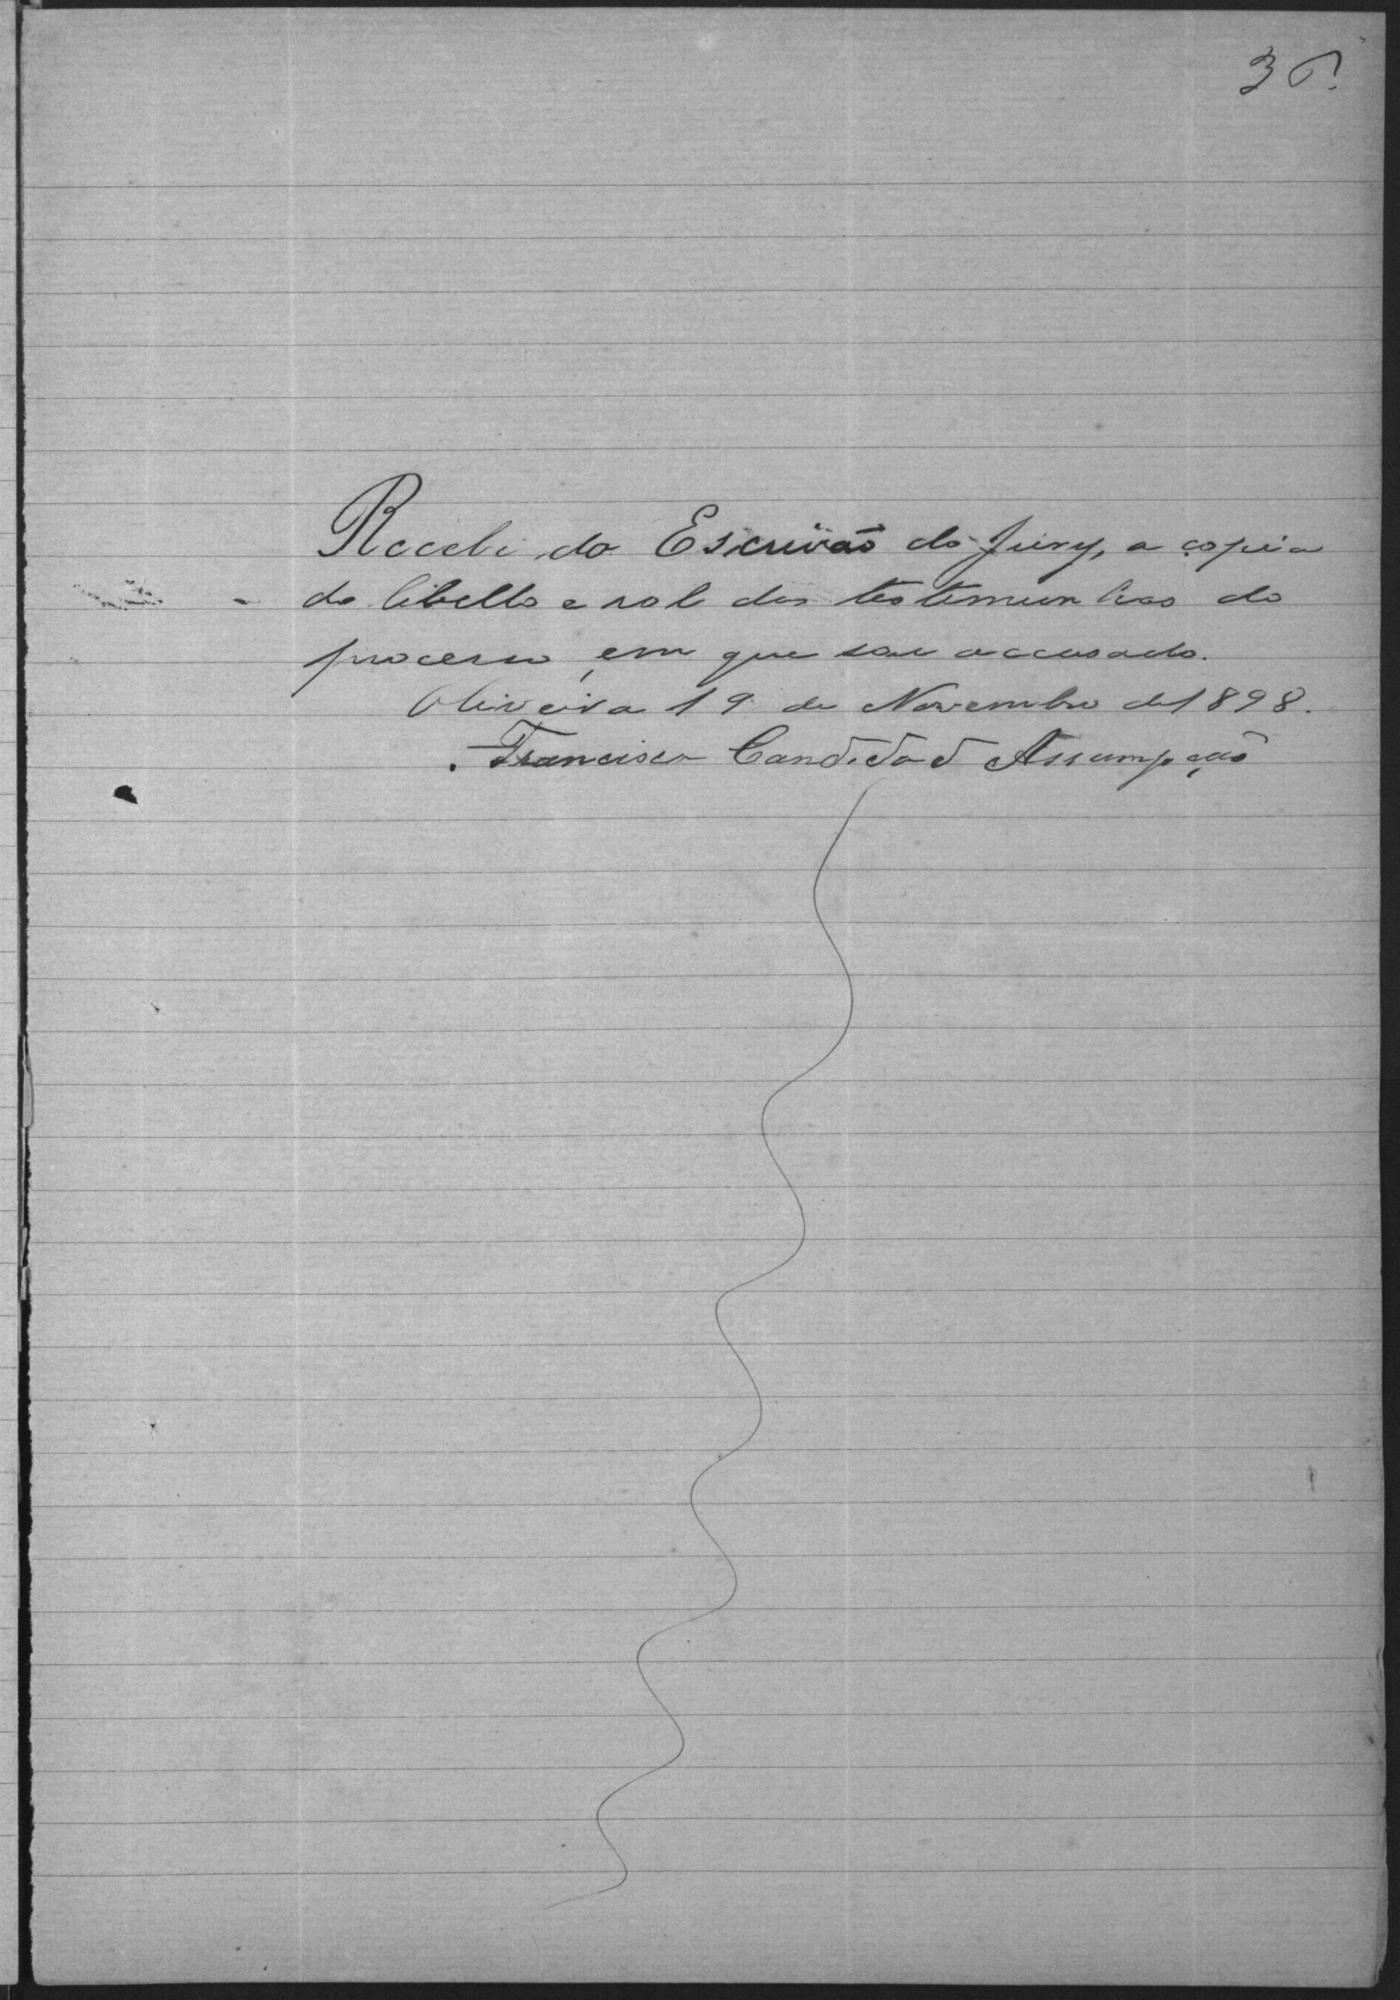 36
Recebi do Escrivão do Jury, a copia
do libello e rol das testemunhas do
processo, em que sou accusado.
Oliveira 19 de Novembro de 1898.
Francisco Candido d Assumpção